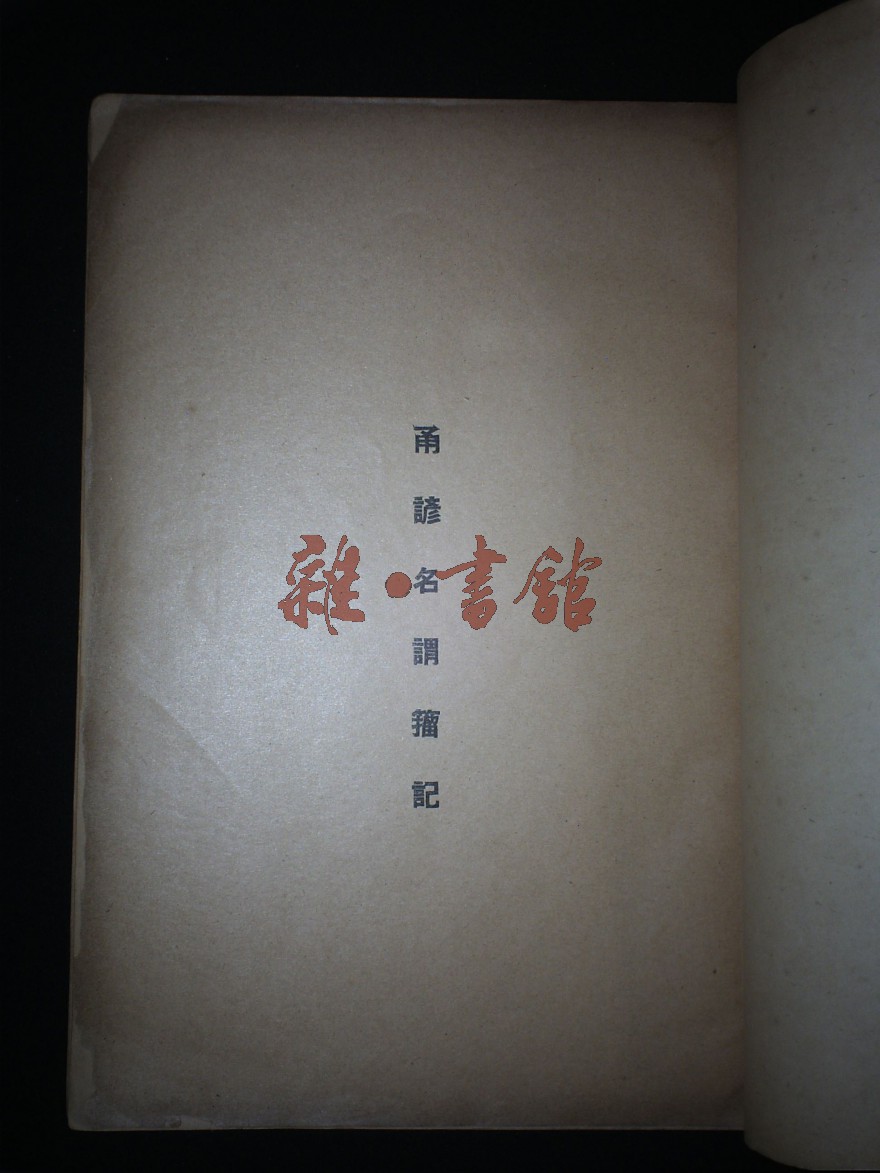 甬諺名謂籀記
雜·書館